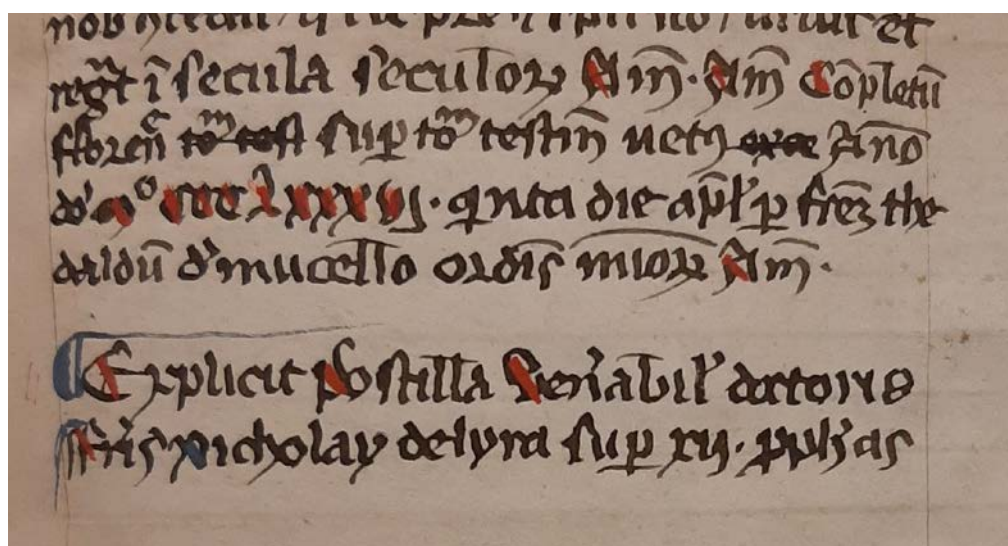 et
regt̄ ī secula seculorꝝ Am̄. Am̄ Cōpletū
fflorēn tōm test sup tōm testm̄ uetꝰ exce Āno
dı̄ mͦ ccc Lxxxvij. qınta die apl̄ ꝑ frēꝫ the
daldū d' mucello ordis mıorꝝ Am̄.
Explicit postilla Ven'abil' doctoris
ffr̄is nicholay de lyra suꝑ xij. ꝓph'as